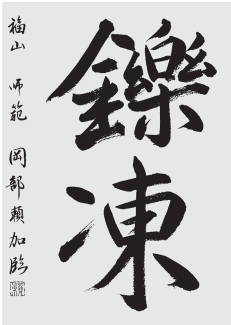 鑠凍
福山 師範 岡部頼加臨